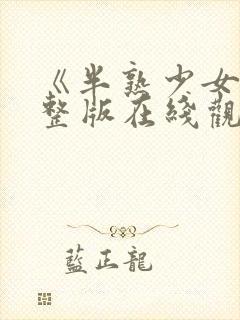 《半熟少女
整版在綫觀
藍正龍